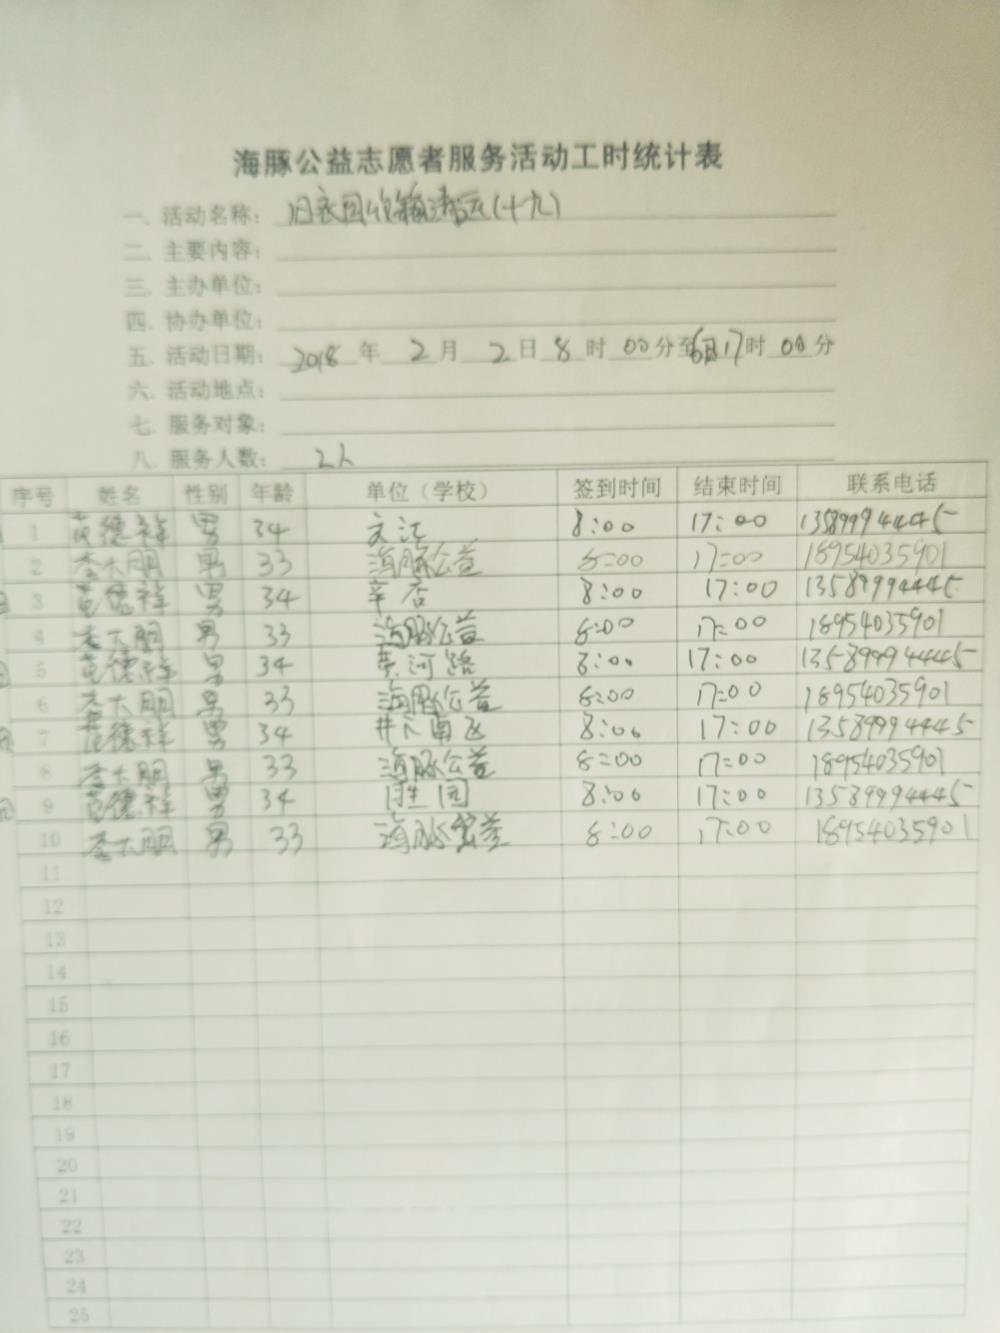 海豚公益志愿者服务活动工时统计表
一. 活动名称: 旧衣回收箱清运(十九)
二. 主要内容:
三. 主办单位:
四. 协办单位:
五. 活动日期: 2018 年 2 月 2 日 8 时 00 分至 6日 17 时 00 分
六. 活动地点:
七. 服务对象:
八. 服务人数: 2人
序号 姓名 性别 年龄 单位（学校） 签到时间 结束时间 联系电话
1 范德祥 男 34 文汇 8:00 17:00 13589994445
2 李大朋 男 33 海豚公益 8:00 17:00 18954035901
3 范德祥 男 34 辛店 8:00 17:00 13589994445
4 李大朋 男 33 海豚公益 8:00 17:00 18954035901
5 范德祥 男 34 黄河路 8:00 17:00 13589994445
6 李大朋 男 33 海豚公益 8:00 17:00 18954035901
7 范德祥 男 34 8:00 17:00 13589994445
8 李大朋 男 33 海豚公益 8:00 17:00 18954035901
9 范德祥 男 34 胜园 8:00 17:00 13589994445
10 李大朋 男 33 海豚公益 8:00 17:00 18954035901
11
12
13
14
15
16
17
18
19
20
21
22
23
24
25